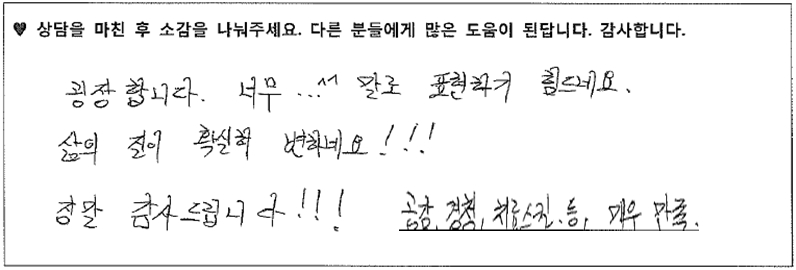 ♥ 상담을 마친 후 소감을 나눠주세요. 다른 분들에게 많은 도움이 된답니다. 감사합니다.
굉장합니다. 너무...서 말로 표현하기 힘드네요.
삶의 질이 확실히 변하네요!!!
정말 감사드립니다!!!
공감, 경청, 치료스킬 등, 매우 만족.